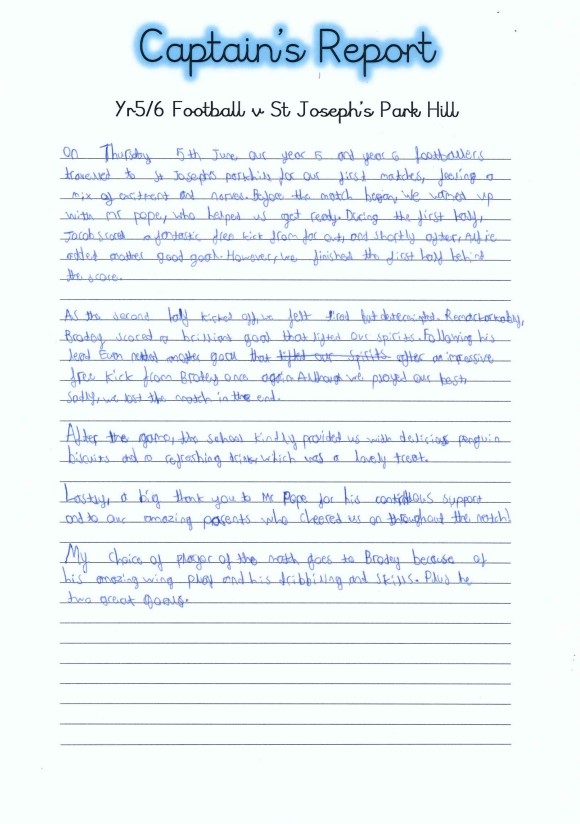 Captain's Report
Yr5/6 Football v St Joseph's Park Hill
On Thursday 5th June, our year 5 and year 6 footballers
travelled to St Joseph's parkhill for our first matches, feeling a
mix of excitment and nerves. Before the match began, we warmed up
with Mr pope, who helped us get ready. During the first half,
Jacob scored a fantastic free kick from far out, and shortly after, Alfie
added another good goal. However, we finished the first half behind
the score.
As the second half kicked off, we felt tired but determined.
Brodey scored a brilliant goal that lifted our spirits. Following his
lead Evan added another goal that lifted our spirits after an impressive
free kick from Brodey once again. Although we played our best,
Sadly, we lost the match in the end.
After the game, the school kindly provided us with delicious penguin
biscuits and a refreshing drink, which was a lovely treat.
Lastly, a big thank you to Mr Pope for his support
and to our amazing parents who cheered us on throughout the match!
My choice of player of the math goes to Brodey because of
his amazing wing play and his dribbling and skills. Plus he
two great goals.